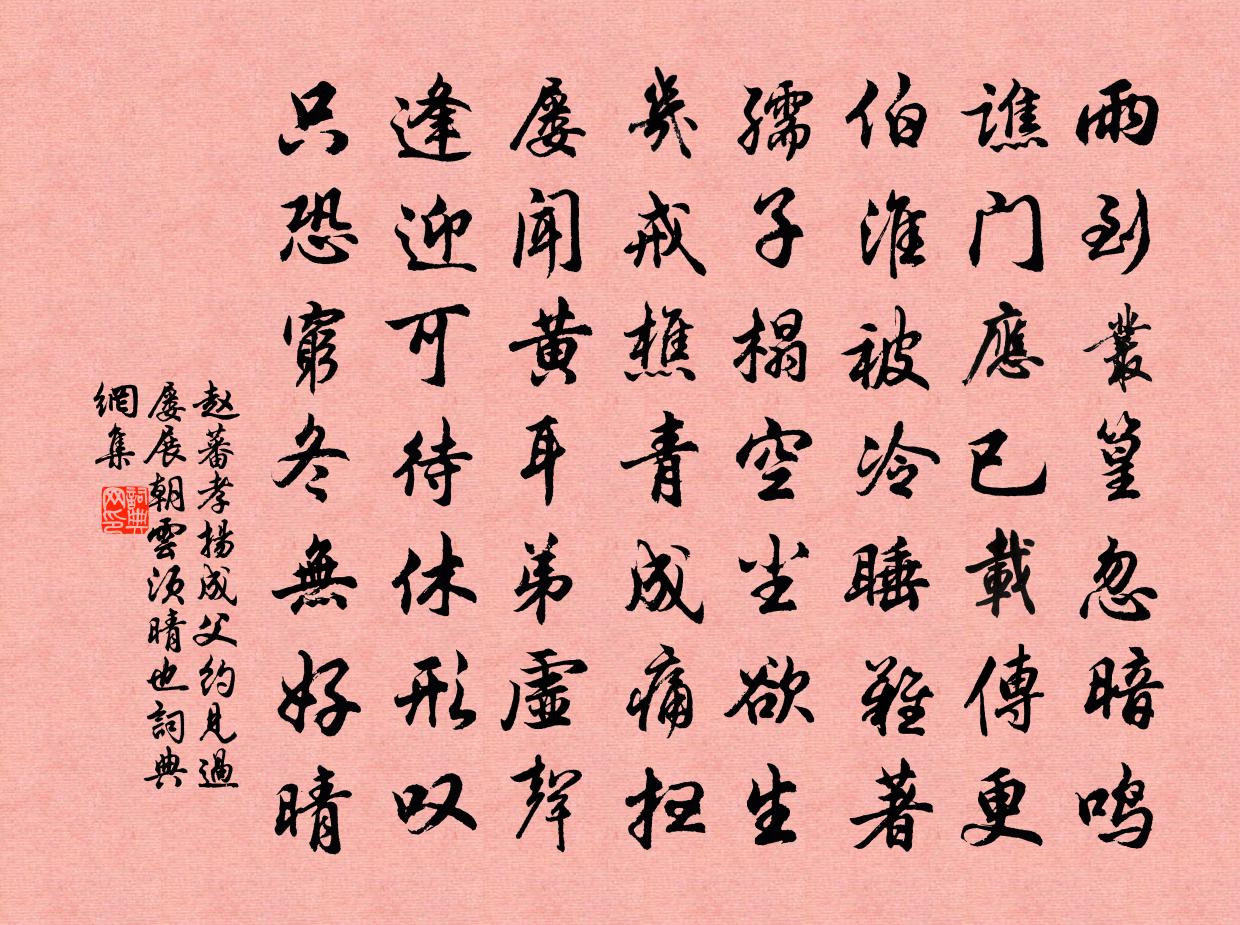 雨到叢篁忽暗鳴
譙門應已載傳更
伯淮被冷睡難著
孺子榻空尘欲生
幾戒樵青成痛扫
屡聞黄耳弟虚聲
逢迎可待休形叹
只恐窮冬無好晴
赵蕃孝揚成父约見過
屡展朝雲须晴也詞典
網集
詞典网印